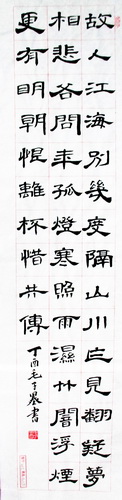 故人江海別幾度隔山川乍見翻疑夢
相悲各問年孤燈寒照雨濕竹闇浮煙
更有明朝恨離杯惜共傳
丁酉毛書